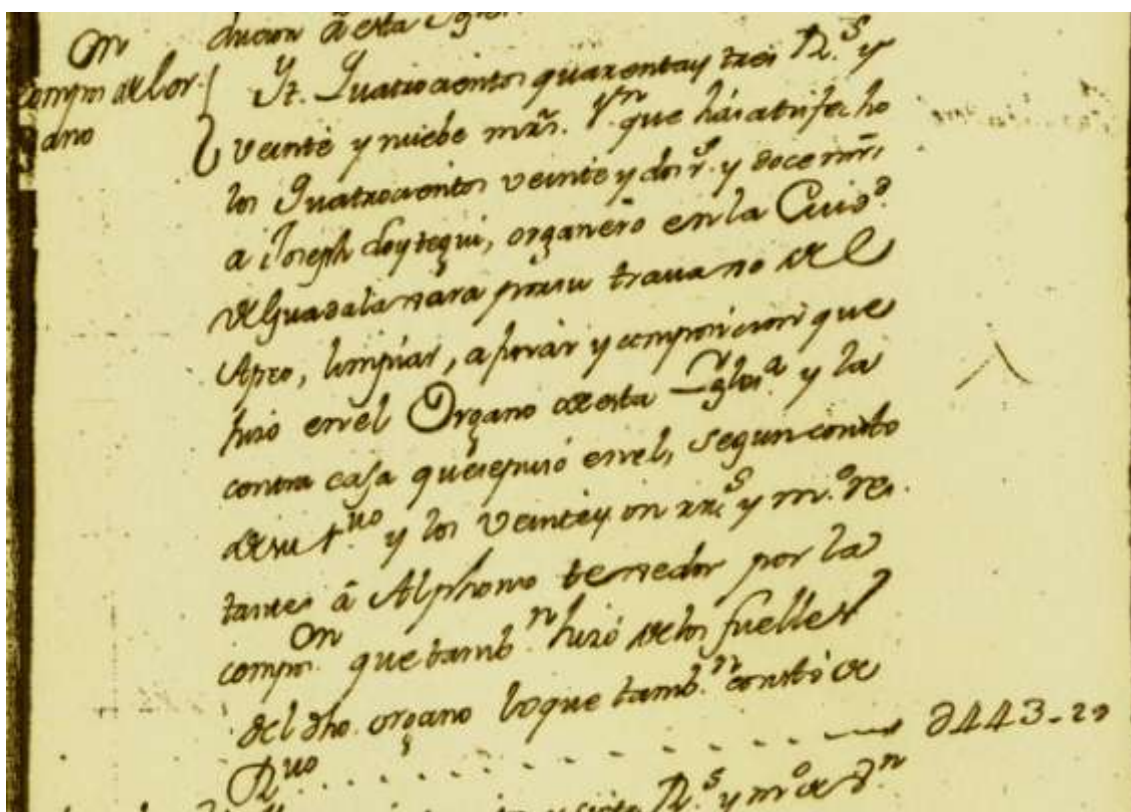 ducion â esta Ygle
on
compon del or
gano
Yt. Quatrocientos quarenta y tres R.s y
veinte y nuebe mrs. Vn. que há satisfecho
los Quatrocientos veinte y dos r.s y doce mrs.
a Joseph Loytegui, organero en la Ciud.d
de Guadalaxara por su travaxo del
Apeo, limpiar, aforár y composicion que
hizo en el Organo de esta Yglesi.a y la
contra caja que se puso en el, segun constó
de su r.uo y los veinte y un rr.s y m.o res
tantes â Alphonso tenedor por la
compon.on que tamb.n hizó de los fuelles
del dho. organo lo que tamb.n constó de
R.uo . . . . . . . . . . . . . . 0443-29
R.s y m.o de V.n